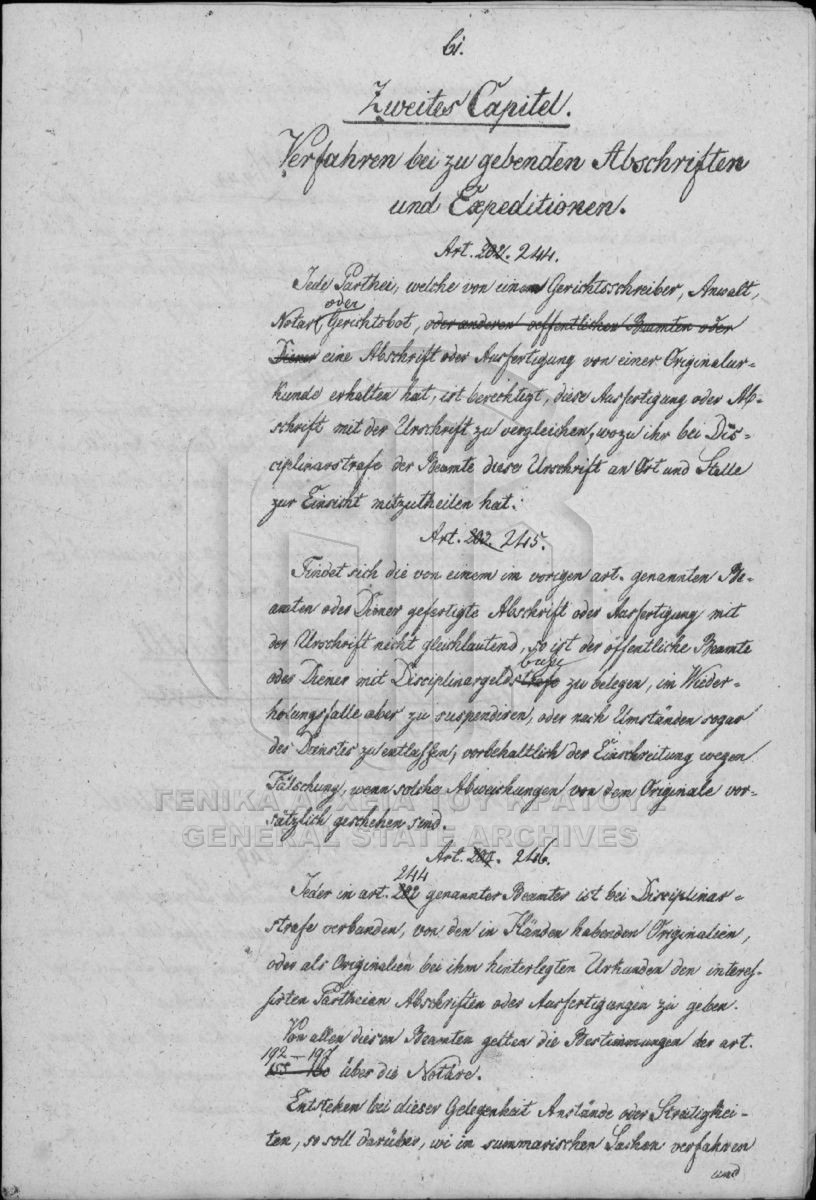 61.
Zweites Capitel.
Verfahren bei zu gebenden Abschriften
und Expeditionen.
Art. 202. 244.
Jede Parthei, welche von einem Gerichtsschreiber, Anwalt,
oder
Notar, Gerichtsbot, oder anderen oeffentlichen Beamten oder
Diener eine Abschrift oder Ausfertigung von einer Originalur-
kunde erhalten hat, ist berechtigt, diese Ausfertigung oder Ab-
schrift mit der Urschrift zu vergleichen, wozu ihr bei Dis-
ciplinarstrafe der Beamte diese Urschrift an Ort und Stelle
zur Einsicht mitzutheilen hat.
Art. 203. 245.
Findet sich die von einem im vorigen art. genannten Be-
amten oder Diener gefertigte Abschrift oder Ausfertigung mit
der Urschrift nicht gleichlautend, so ist der öffentliche Beamte
buße
oder Diener mit Disciplinargeldstrafe zu belegen, im Wieder-
holungsfalle aber zu suspendiren, oder nach Umständen sogar
des Dienstes zu entlassen, vorbehaltlich der Einschreitung wegen
Fälschung, wenn solche Abweichungen von dem Originale vor-
sätzlich geschehen sind.
ΓΕΝΙΚΑ ΑΡΧΕΙΑ ΤΟΥ ΚΡΑΤΟΥΣ
GENERAL STATE ARCHIVES
Art. 204. 246.
244
Jeder in art. 202 genannter Beamter ist bei Disciplinar-
strafe verbunden, von den in Händen habenden Originalien,
oder als Originalien bei ihm hinterlegten Urkunden den interes-
sirten Partheien Abschriften oder Ausfertigungen zu geben.
Von allen diesen Beamten gelten die Bestimmungen der art.
192 – 197
155 – 160 über die Notäre.
Entstehen bei dieser Gelegenheit Anstände oder Streitigkei-
ten, so soll darüber, wi in summarischen Sachen verfahren
und